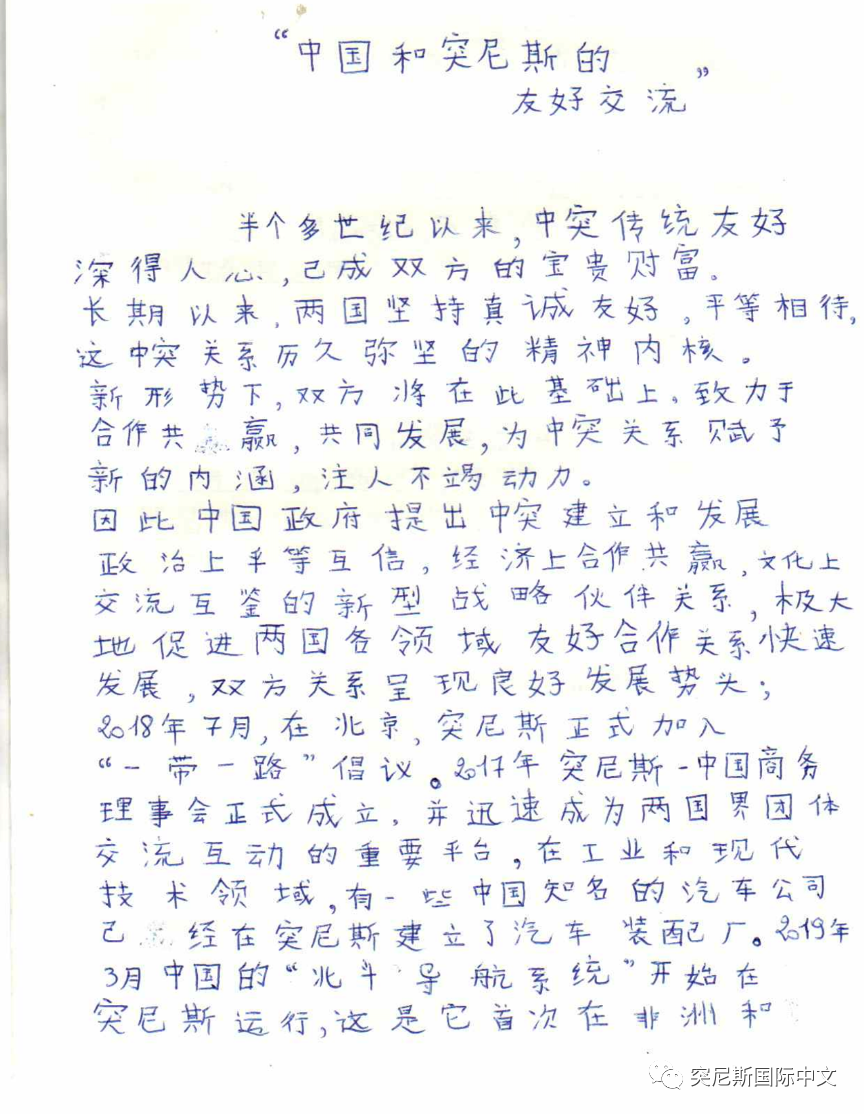 “中国和突尼斯的
友好交流”
半个多世纪以来,中突传统友好
深得人心,已成双方的宝贵财富。
长期以来,两国坚持真诚友好,平等相待,
这中突关系历久弥坚的精神内核。
新形势下,双方将在此基础上。致力于
合作共赢,共同发展,为中突关系赋予
新的内涵,注人不竭动力。
因此中国政府提出中突建立和发展
政治上平等互信,经济上合作共赢,文化上
交流互鉴的新型战略伙伴关系,极大
地促进两国各领域友好合作关系快速
发展,双方关系呈现良好发展势头;
2018年7月,在北京,突尼斯正式加入
“一带一路”倡议。2017年突尼斯-中国商务
理事会正式成立,并迅速成为两国界团体
交流互动的重要平台,在工业和现代
技术领域,有一些中国知名的汽车公司
已经在突尼斯建立了汽车装配厂。2019年
3月中国的“北斗导航系统”开始在
突尼斯运行,这是它首次在非洲和
突尼斯国际中文